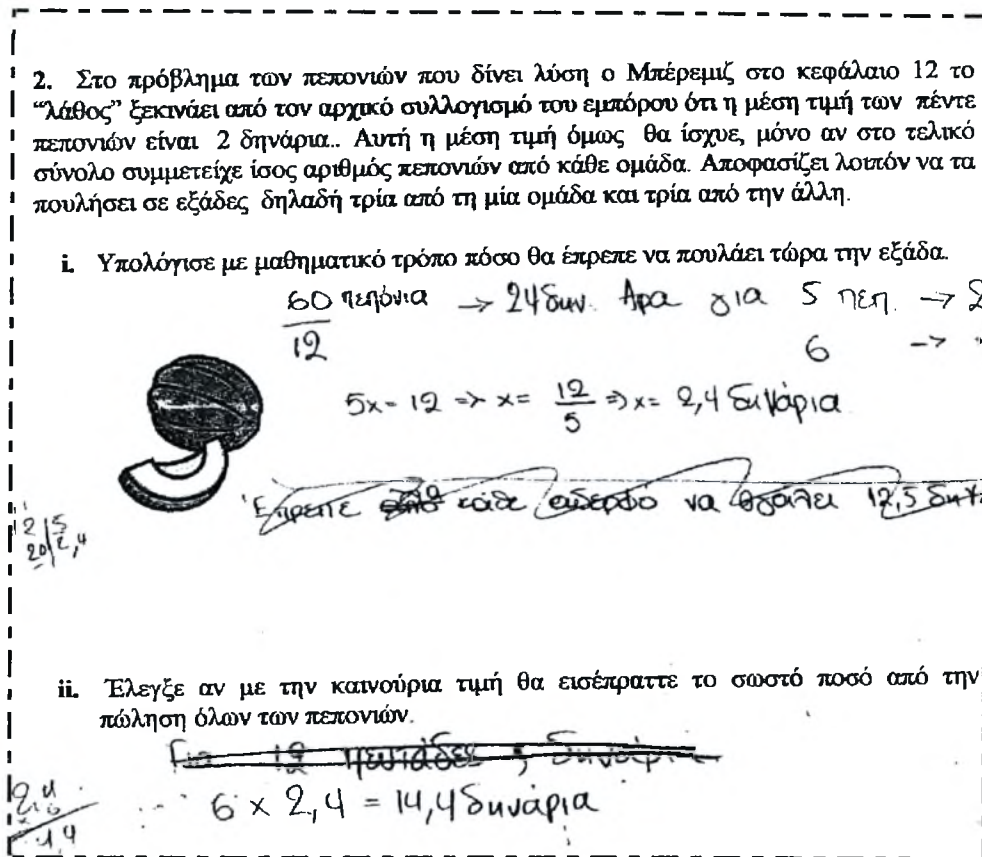 2. Στο πρόβλημα των πεπονιών που δίνει λύση ο Μπέρεμιζ στο κεφάλαιο 12 το
“λάθος” ξεκινάει από τον αρχικό συλλογισμό του εμπόρου ότι η μέση τιμή των πέντε
πεπονιών είναι 2 δηνάρια.. Αυτή η μέση τιμή όμως θα ίσχυε, μόνο αν στο τελικό
σύνολο συμμετείχε ίσος αριθμός πεπονιών από κάθε ομάδα. Αποφασίζει λοιπόν να τα
πουλήσει σε εξάδες δηλαδή τρία από τη μία ομάδα και τρία από την άλλη.
i. Υπολόγισε με μαθηματικό τρόπο πόσο θα έπρεπε να πουλάει τώρα την εξάδα.
60 πεπόνια -> 24 δην. Αρα για 5 πεπ. -> 2
12
6 ->
5x = 12 => x = 12/5 => x = 2,4 δηνάρια
Έπρεπε κάθε αδερφό να βγάλει 12,5 δην
12 | 5
20 | 2,4
ii. Έλεγξε αν με την καινούρια τιμή θα εισέπραττε το σωστό ποσό από την
πώληση όλων των πεπονιών.
Για 12 πεντάδες ; δηνάρια
6 x 2,4 = 14,4 δηνάρια
2,4